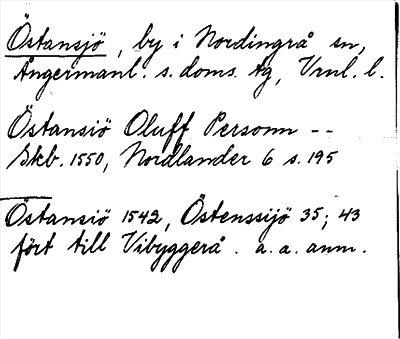 Östansjö, by i Nordingrå sn,
Ångermanl. s. doms. tg, Vrnl. l.
Östansiö Oluff Personn --
Skb. 1550, Nordlander 6 s. 195
Östansiö 1542, Östenssijö 35; 43
fört till Vibyggerå. a. a. anm.